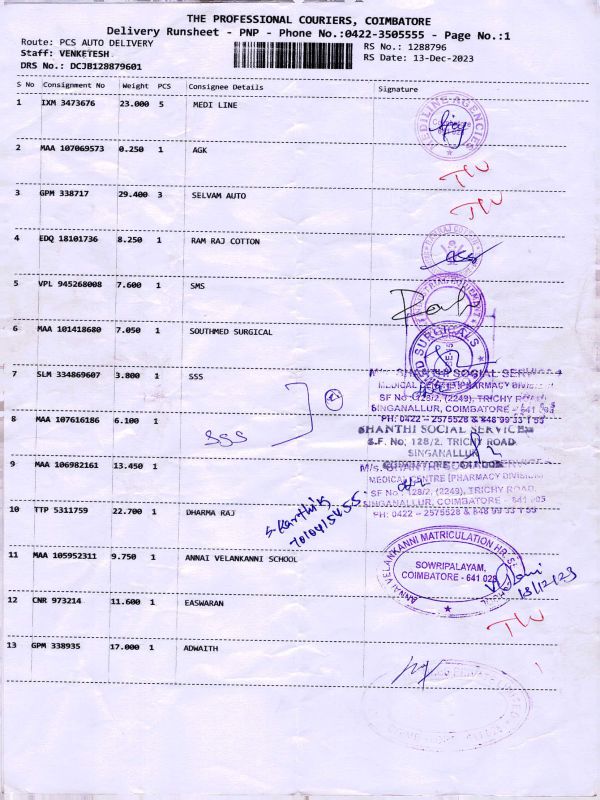 THE PROFESSIONAL COURIERS, COIMBATORE
Delivery Runsheet - PNP - Phone No.:0422-3505555 - Page No.:1
Route: PCS AUTO DELIVERY
RS No.: 1288796
Staff: VENKETESH
RS Date: 13-Dec-2023
DRS No.: DCJB128879601
S No Consignment No Weight PCS Consignee Details Signature
1 IXM 3473676 23.000 5 MEDI LINE
MEDILINE AGENCIES
2 MAA 107069573 0.250 1 AGK
3 GPM 338717 29.400 3 SELVAM AUTO
4 EDQ 18101736 8.250 1 RAM RAJ COTTON
5 VPL 945268008 7.600 1 SMS
6 MAA 101418680 7.050 1 SOUTHMED SURGICAL
7 SLM 334869607 3.800 1 SSS
M/s. SHANTHI SOCIAL SERVICES
MEDICAL CENTRE [PHARMACY DIVISION]
SF No :128/2, (2249), TRICHY ROAD
SINGANALLUR, COIMBATORE - 641 005
PH: 0422 - 2575528 & 848 99 33 1 55
8 MAA 107616186 6.100 1
SSS
SHANTHI SOCIAL SERVICES
S.F. No: 128/2, TRICHY ROAD
SINGANALLUR
9 MAA 106982161 13.450 1
M/s. SHANTHI SOCIAL SERVICES
MEDICAL CENTRE [PHARMACY DIVISION]
SF No : 128/2, (2249), TRICHY ROAD,
SINGANALLUR, COIMBATORE - 641 005
PH: 0422 - 2575528 & 848 99 33 1 55
10 TTP 5311759 22.700 1 DHARMA RAJ
S. Karthik
11 MAA 105952311 9.750 1 ANNAI VELANKANNI SCHOOL
ANNAI VELANKANNI MATRICULATION HR. SEC
SOWRIPALAYAM,
COIMBATORE - 641 028
13/12/23
12 CNR 973214 11.600 1 EASWARAN
13 GPM 338935 17.000 1 ADWAITH